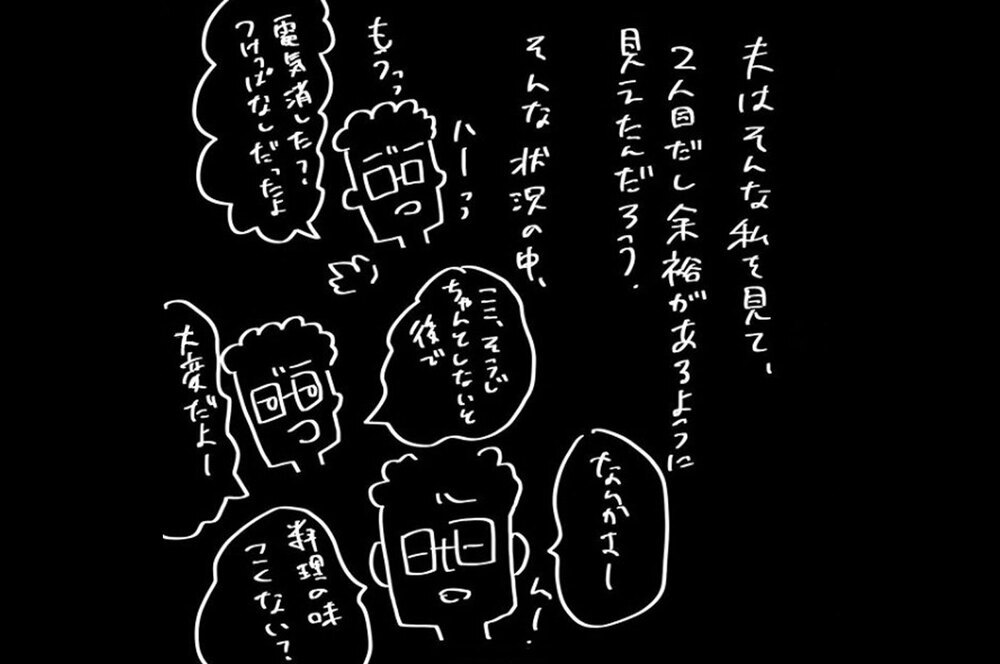 夫はそんな私を見て、
2人目だし余裕があるように
見えたんだろう。
そんな状況の中、
もうっっ
ハーっっ
電気消した?
つけっぱなしだったよ
ここ、そうじ
ちゃんとしないと
後で
大変だよー
なんかさー
んー。
料理の味
つくない?